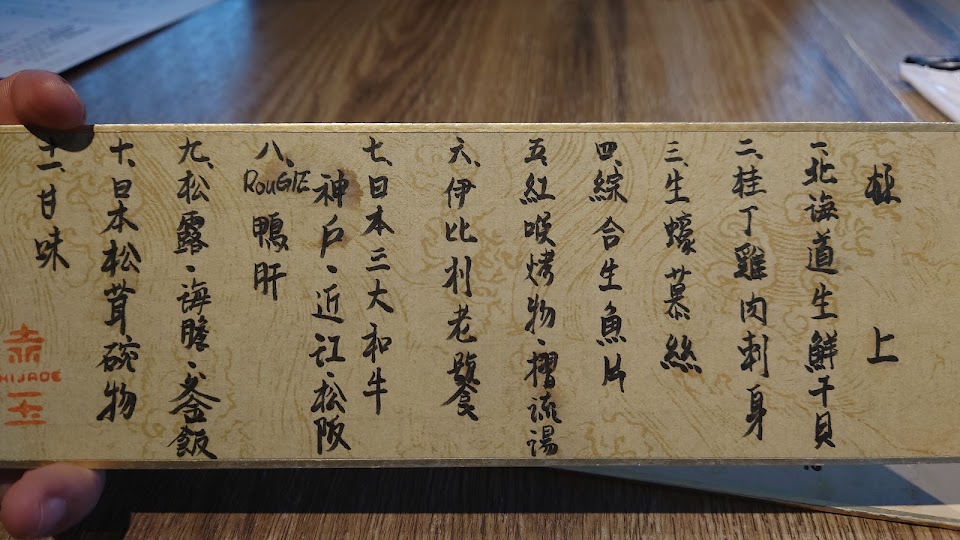 極上
一、北海道生鮮干貝
二、桂丁雞肉刺身
三、生蠔慕絲
四、綜合生魚片
五、紅喉烤物·摺流湯
六、伊比利老饕
七、日本三大和牛
神戶·近江·松阪
八、ROUGIE鴨肝
九、松露·海膽·釜飯
十、日本松茸碗物
十一、甘味
赤
HIJADE
玉